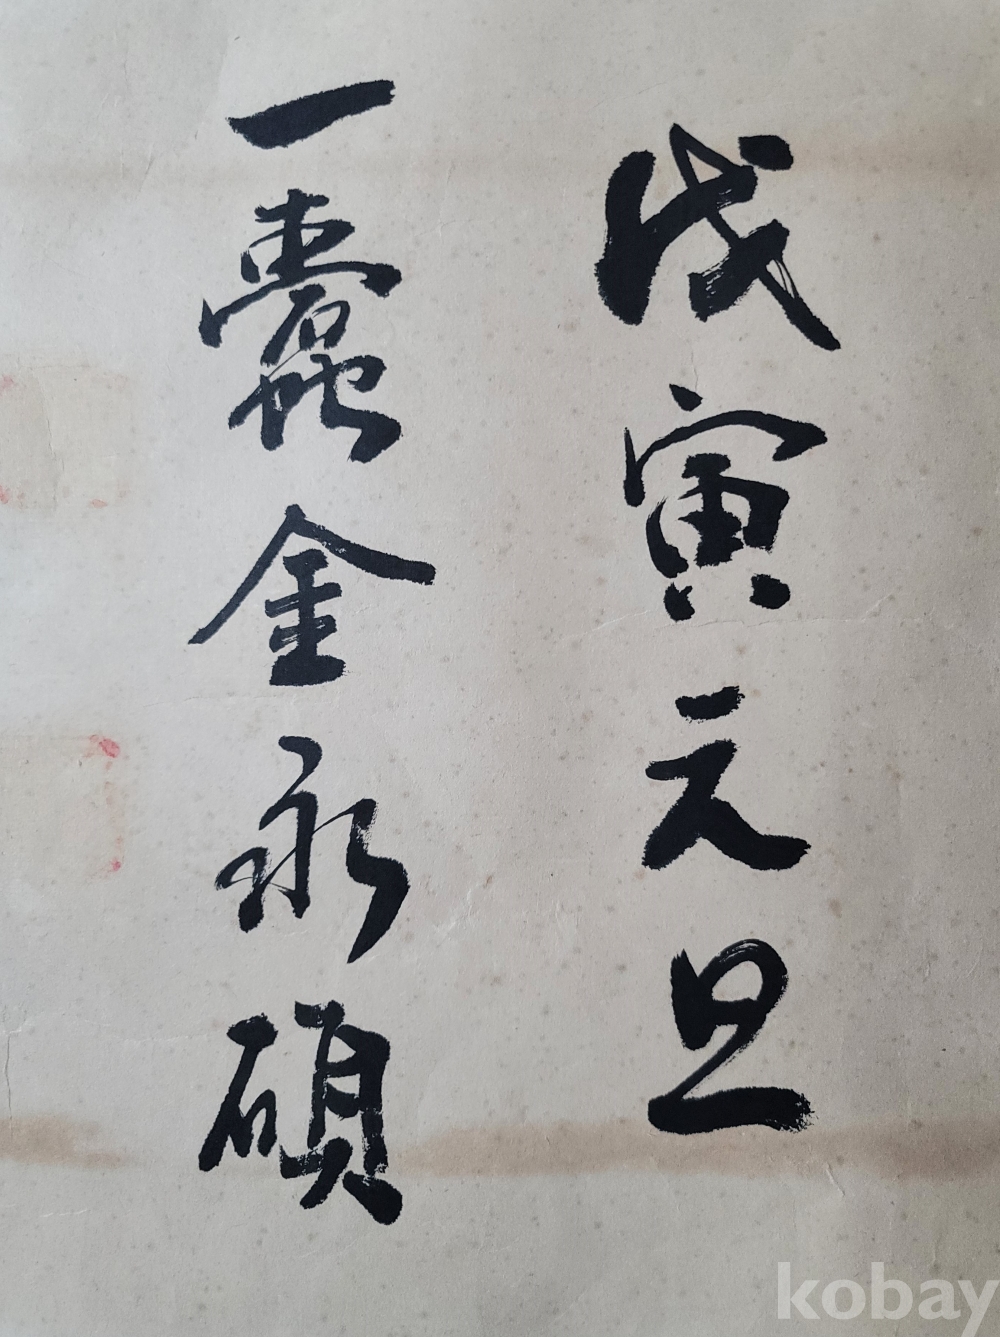 戊寅元旦
一蠹金永碩
kobay